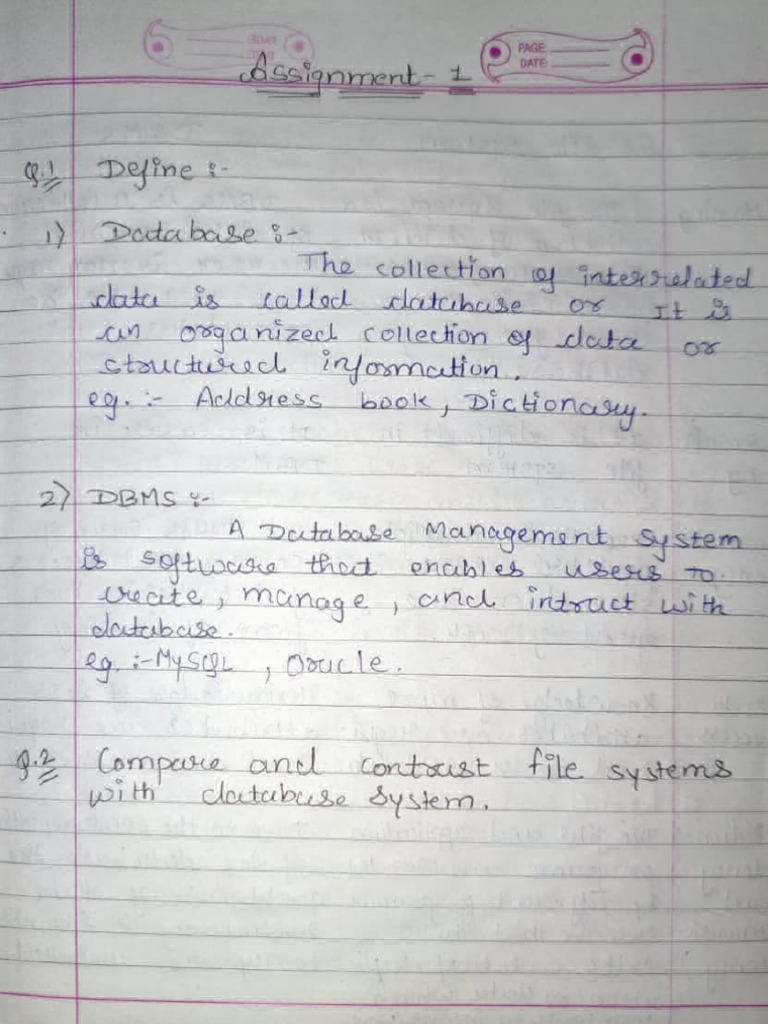 PAGE
DATE
Assignment - 1
Q.1 Define :-
1) Database :-
The collection of interrelated
data is called database or It is
an organized collection of data or
structured information.
eg. :- Address book, Dictionary.
2) DBMS :-
A Database Management System
is software that enables users to
create, manage, and intract with
database.
eg. :- MySQL, Oracle.
Q.2 Compare and contrast file systems
with database system.